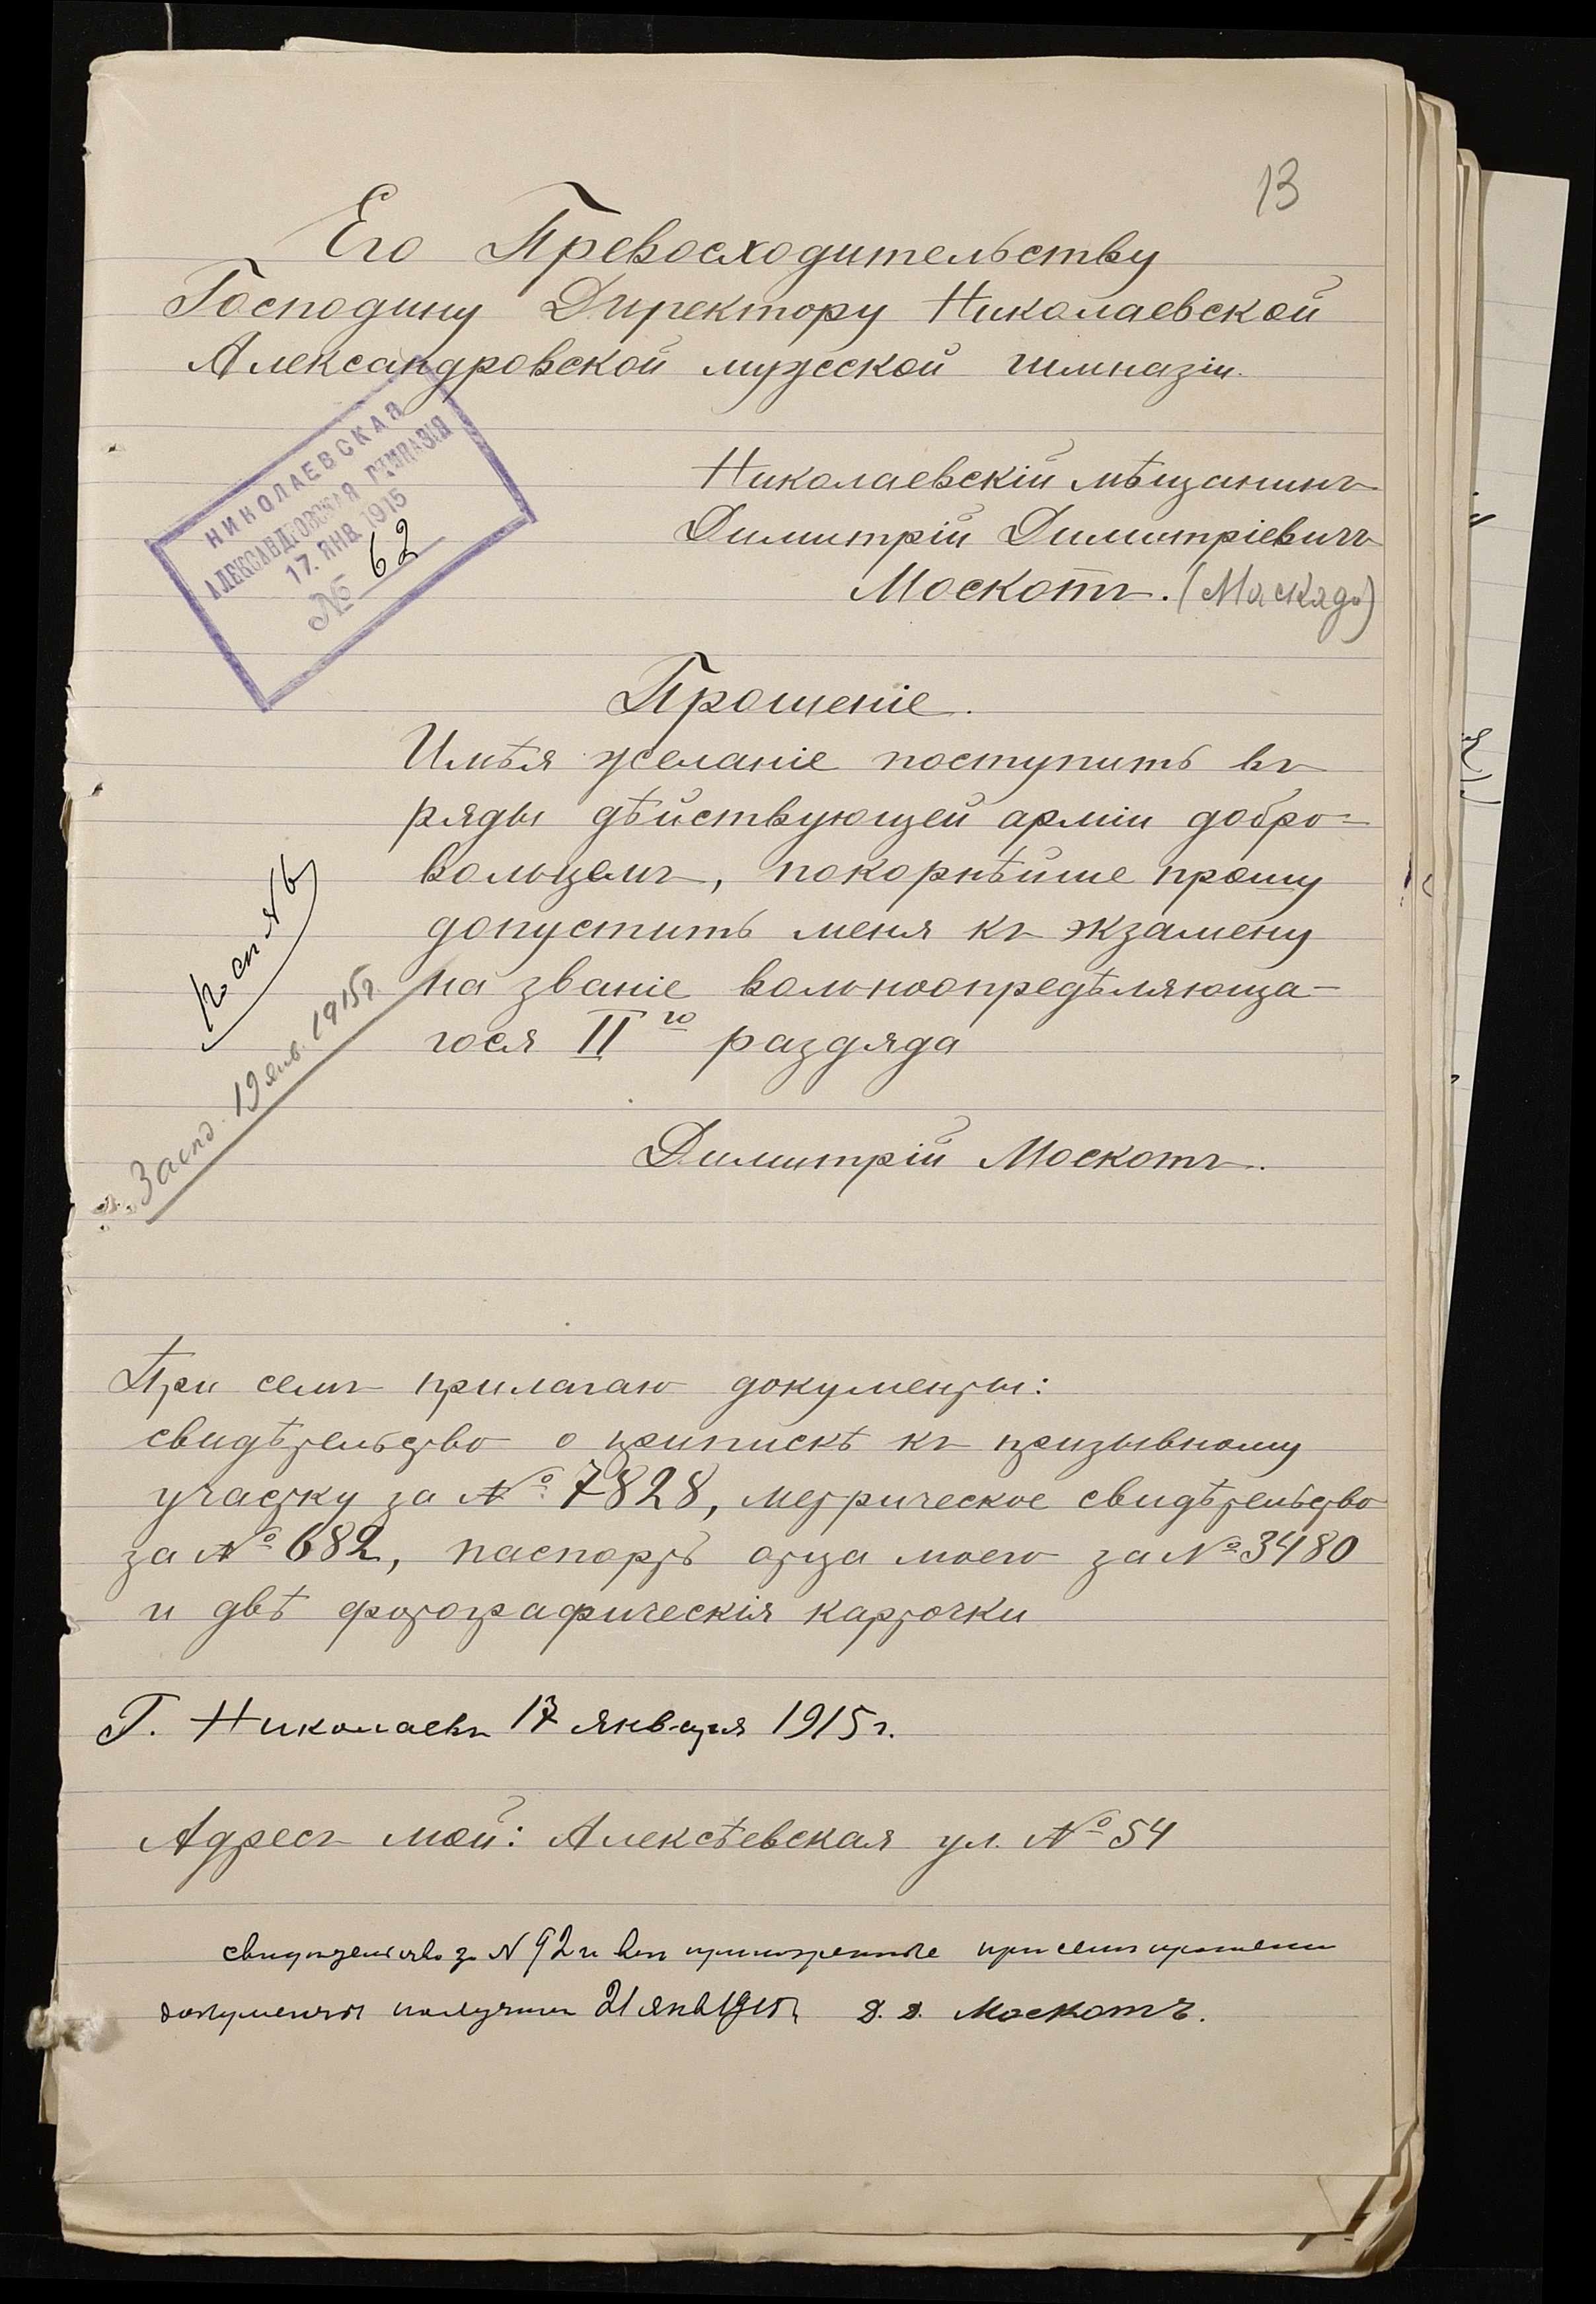 13
Его Превосходительству
Господину Директору Николаевской
Александровской мужской гимназіи.
НИКОЛАЕВСКАЯ
АЛЕКСАНДРОВСКАЯ ГИМНАЗІЯ
17. ЯНВ. 1915
№ 62
Николаевскій мѣщанинъ
Димитрій Димитріевичъ
Москотъ. (Маскадо)
Прошеніе.
Имѣя желаніе поступить въ
ряды дѣйствующей арміи добро-
вольцемъ, покорнѣйше прошу
допустить меня къ экзамену
на званіе вольноопредѣляюща-
гося II го раздяда
19 янв. 1915 г.
Димитрій Москотъ.
При семъ прилагаю документы:
свидѣтельство о припискѣ къ призывному
участку за № 7828, метрическое свидѣтельство
за № 682, паспортъ отца моего за № 3480
и двѣ фотографическія карточки
Г. Николаевъ 17 января 1915 г.
Адресъ мой: Алексѣевская ул. № 54
свидѣтельство за N 92 и всѣ при семъ прошеніи
документы получилъ 21 янв 1915 г. Д. Д. Москотъ.